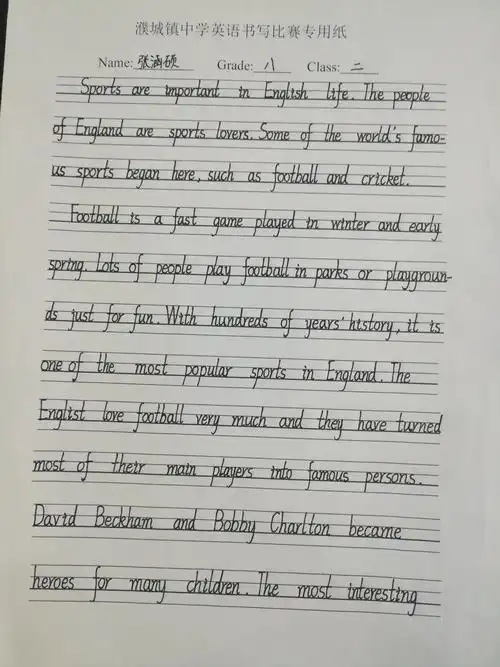 濮城镇中学英语书写比赛专用纸
Name: 张涵硕 Grade: 八 Class: 二
Sports are important in English life. The people
of England are sports lovers. Some of the world's famo-
us sports began here, such as football and cricket.
Football is a fast game played in winter and early
spring. Lots of people play football in parks or playgroun-
ds just for fun. With hundreds of years' history, it is
one of the most popular sports in England. The
Englist love football very much and they have turned
most of their main players into famous persons.
David Beckham and Bobby Charlton became
heroes for many children. The most interesting